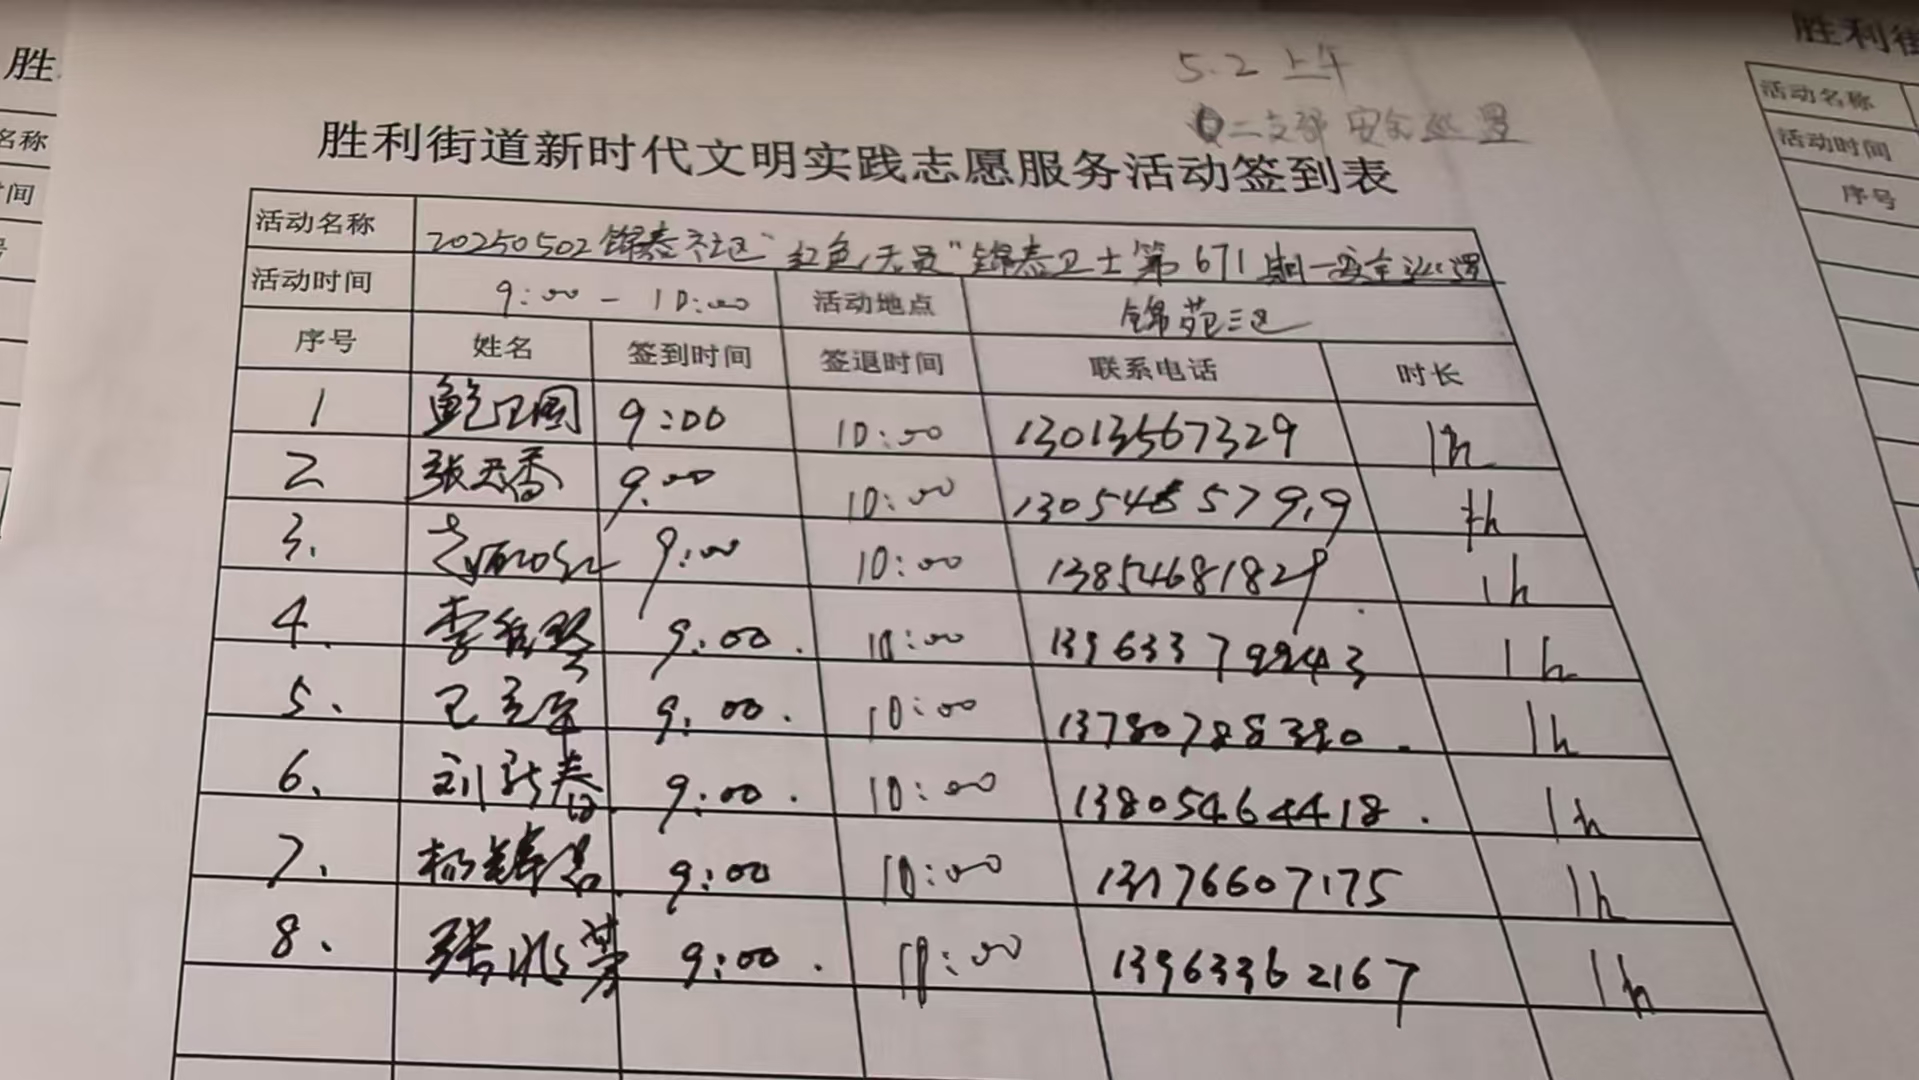 5.2 上午
二支部 安全巡逻
胜利街道新时代文明实践志愿服务活动签到表
活动名称 20250502锦泰社区"红色 员"锦泰卫士第671期-安全巡逻
活动时间 9:00 - 10:00 活动地点 锦苑三区
序号 姓名 签到时间 签退时间 联系电话 时长
1 鲍卫国 9:00 10:00 13013567329 1h
2 张天香 9:00 10:00 1305485799 1h
3. 9:00 10:00 13854681829 1h
4. 李 9:00. 10:00 1h
5. 王 9:00. 10:00 13780788380. 1h
6. 刘新春 9:00. 10:00 13805464418. 1h
7. 杨 9:00 10:00 13176607175 1h
8. 张兆芳 9:00. 10:00 13963362167 1h
胜
名称
时间
号
胜利街
活动名称
活动时间
序号